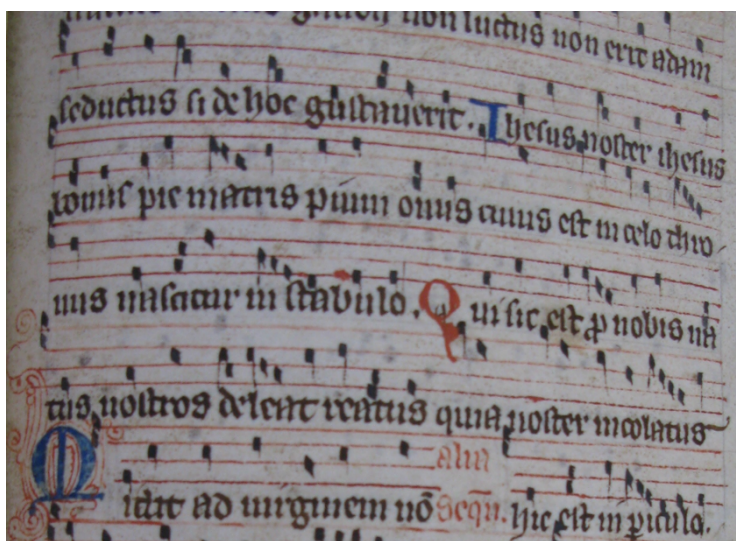 gustaverit non luctus non erit adam
seductus si de hoc gustaverit. Ihesus noster ihesus
bonus pie matris pium onus cuius est in celo thro
nus nascitur in stabulo. Qui sic est p nobis na
tus nostros deleat reatus quia noster incolatus
Mittit ad virginem nō alia sequē. hic est in piculo.